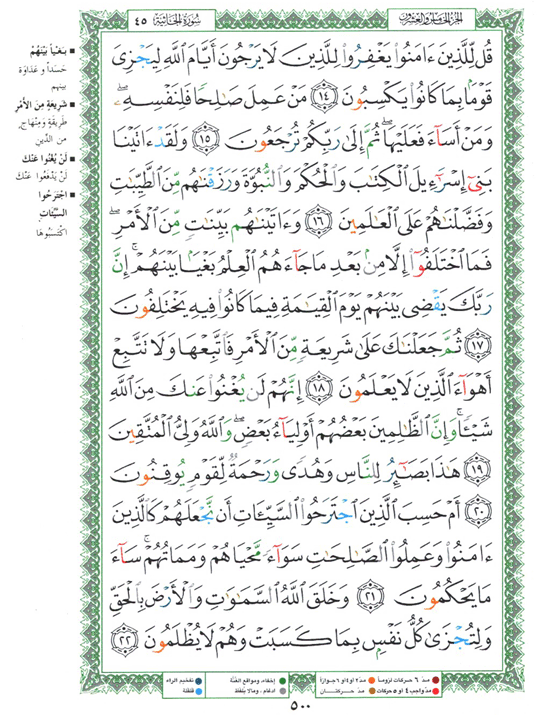 الجزء الخامس والعشرون
سورة الجاثية
٤٥
قُل لِّلَّذِينَ ءَامَنُوا۟ يَغْفِرُوا۟ لِلَّذِينَ لَا يَرْجُونَ أَيَّامَ ٱللَّهِ لِيَجْزِىَ
قَوْمًۢا بِمَا كَانُوا۟ يَكْسِبُونَ ١٤ مَنْ عَمِلَ صَٰلِحًا فَلِنَفْسِهِۦ ۖ
وَمَنْ أَسَآءَ فَعَلَيْهَا ۖ ثُمَّ إِلَىٰ رَبِّكُمْ تُرْجَعُونَ ١٥ وَلَقَدْ ءَاتَيْنَا
بَنِىٓ إِسْرَٰٓءِيلَ ٱلْكِتَٰبَ وَٱلْحُكْمَ وَٱلنُّبُوَّةَ وَرَزَقْنَٰهُم مِّنَ ٱلطَّيِّبَٰتِ
وَفَضَّلْنَٰهُمْ عَلَى ٱلْعَٰلَمِينَ ١٦ وَءَاتَيْنَٰهُم بَيِّنَٰتٍ مِّنَ ٱلْأَمْرِ ۖ
فَمَا ٱخْتَلَفُوٓا۟ إِلَّا مِنۢ بَعْدِ مَا جَآءَهُمُ ٱلْعِلْمُ بَغْيًۢا بَيْنَهُمْ ۚ إِنَّ
رَبَّكَ يَقْضِى بَيْنَهُمْ يَوْمَ ٱلْقِيَٰمَةِ فِيمَا كَانُوا۟ فِيهِ يَخْتَلِفُونَ
١٧ ثُمَّ جَعَلْنَٰكَ عَلَىٰ شَرِيعَةٍ مِّنَ ٱلْأَمْرِ فَٱتَّبِعْهَا وَلَا تَتَّبِعْ
أَهْوَآءَ ٱلَّذِينَ لَا يَعْلَمُونَ ١٨ إِنَّهُمْ لَن يُغْنُوا۟ عَنكَ مِنَ ٱللَّهِ
شَيْـًٔا ۚ وَإِنَّ ٱلظَّٰلِمِينَ بَعْضُهُمْ أَوْلِيَآءُ بَعْضٍ ۖ وَٱللَّهُ وَلِىُّ ٱلْمُتَّقِينَ
١٩ هَٰذَا بَصَٰٓئِرُ لِلنَّاسِ وَهُدًى وَرَحْمَةٌ لِّقَوْمٍ يُوقِنُونَ
٢٠ أَمْ حَسِبَ ٱلَّذِينَ ٱجْتَرَحُوا۟ ٱلسَّيِّـَٔاتِ أَن نَّجْعَلَهُمْ كَٱلَّذِينَ
ءَامَنُوا۟ وَعَمِلُوا۟ ٱلصَّٰلِحَٰتِ سَوَآءً مَّحْيَاهُمْ وَمَمَاتُهُمْ ۚ سَآءَ
مَا يَحْكُمُونَ ٢١ وَخَلَقَ ٱللَّهُ ٱلسَّمَٰوَٰتِ وَٱلْأَرْضَ بِٱلْحَقِّ
وَلِتُجْزَىٰ كُلُّ نَفْسٍۭ بِمَا كَسَبَتْ وَهُمْ لَا يُظْلَمُونَ ٢٢
■ بغياً بينهم
حسداً وعداوة
بينهم
■ شريعة من الأمر
طريقة ومنهاج
من الدين
■ لن يُغنوا عنك
لن يدفعوا عنك
■ اجترحوا
السيئات
اكتسبوها
مدّ ٦ حركات لزوماً
مدّ ٢ أو ٤ أو ٦ جوازاً
مدّ واجب ٤ أو ٥ حركات
مدّ حركتان
إخفاء، ومواقع الغنّة
ادغام، وما لا يُلفظ
تفخيم الراء
قلقلة
٥٠٠